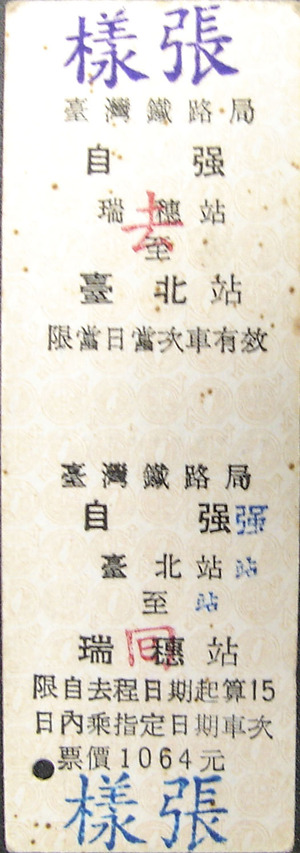 樣張
臺灣鐵路局
自强
瑞穗站
去
至
臺北站
限當日當次車有效
臺灣鐵路局
自强强
臺北站站
至站
瑞穗站
回
限自去程日期起算15
日內乘指定日期車次
票價1064元
樣張